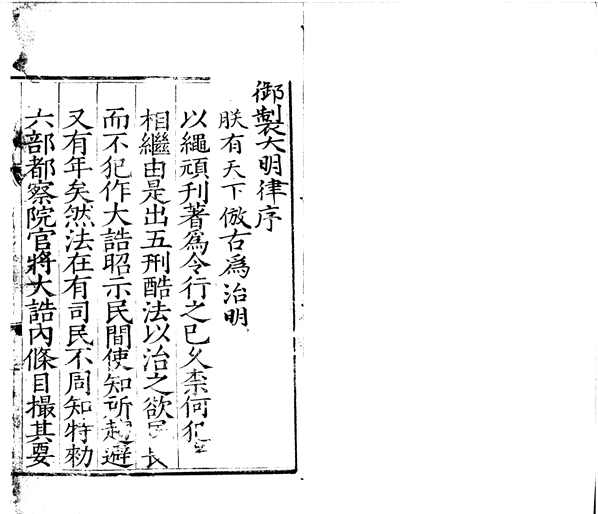 御製大明律序
朕有天下倣古爲治明
以繩頑刊著爲令行之已久柰何犯
相繼由是出五刑酷法以治之欲
而不犯作大誥昭示民間使知所趨避
又有年矣然法在有司民不周知特勑
六部都察院官將大誥內條目撮其要